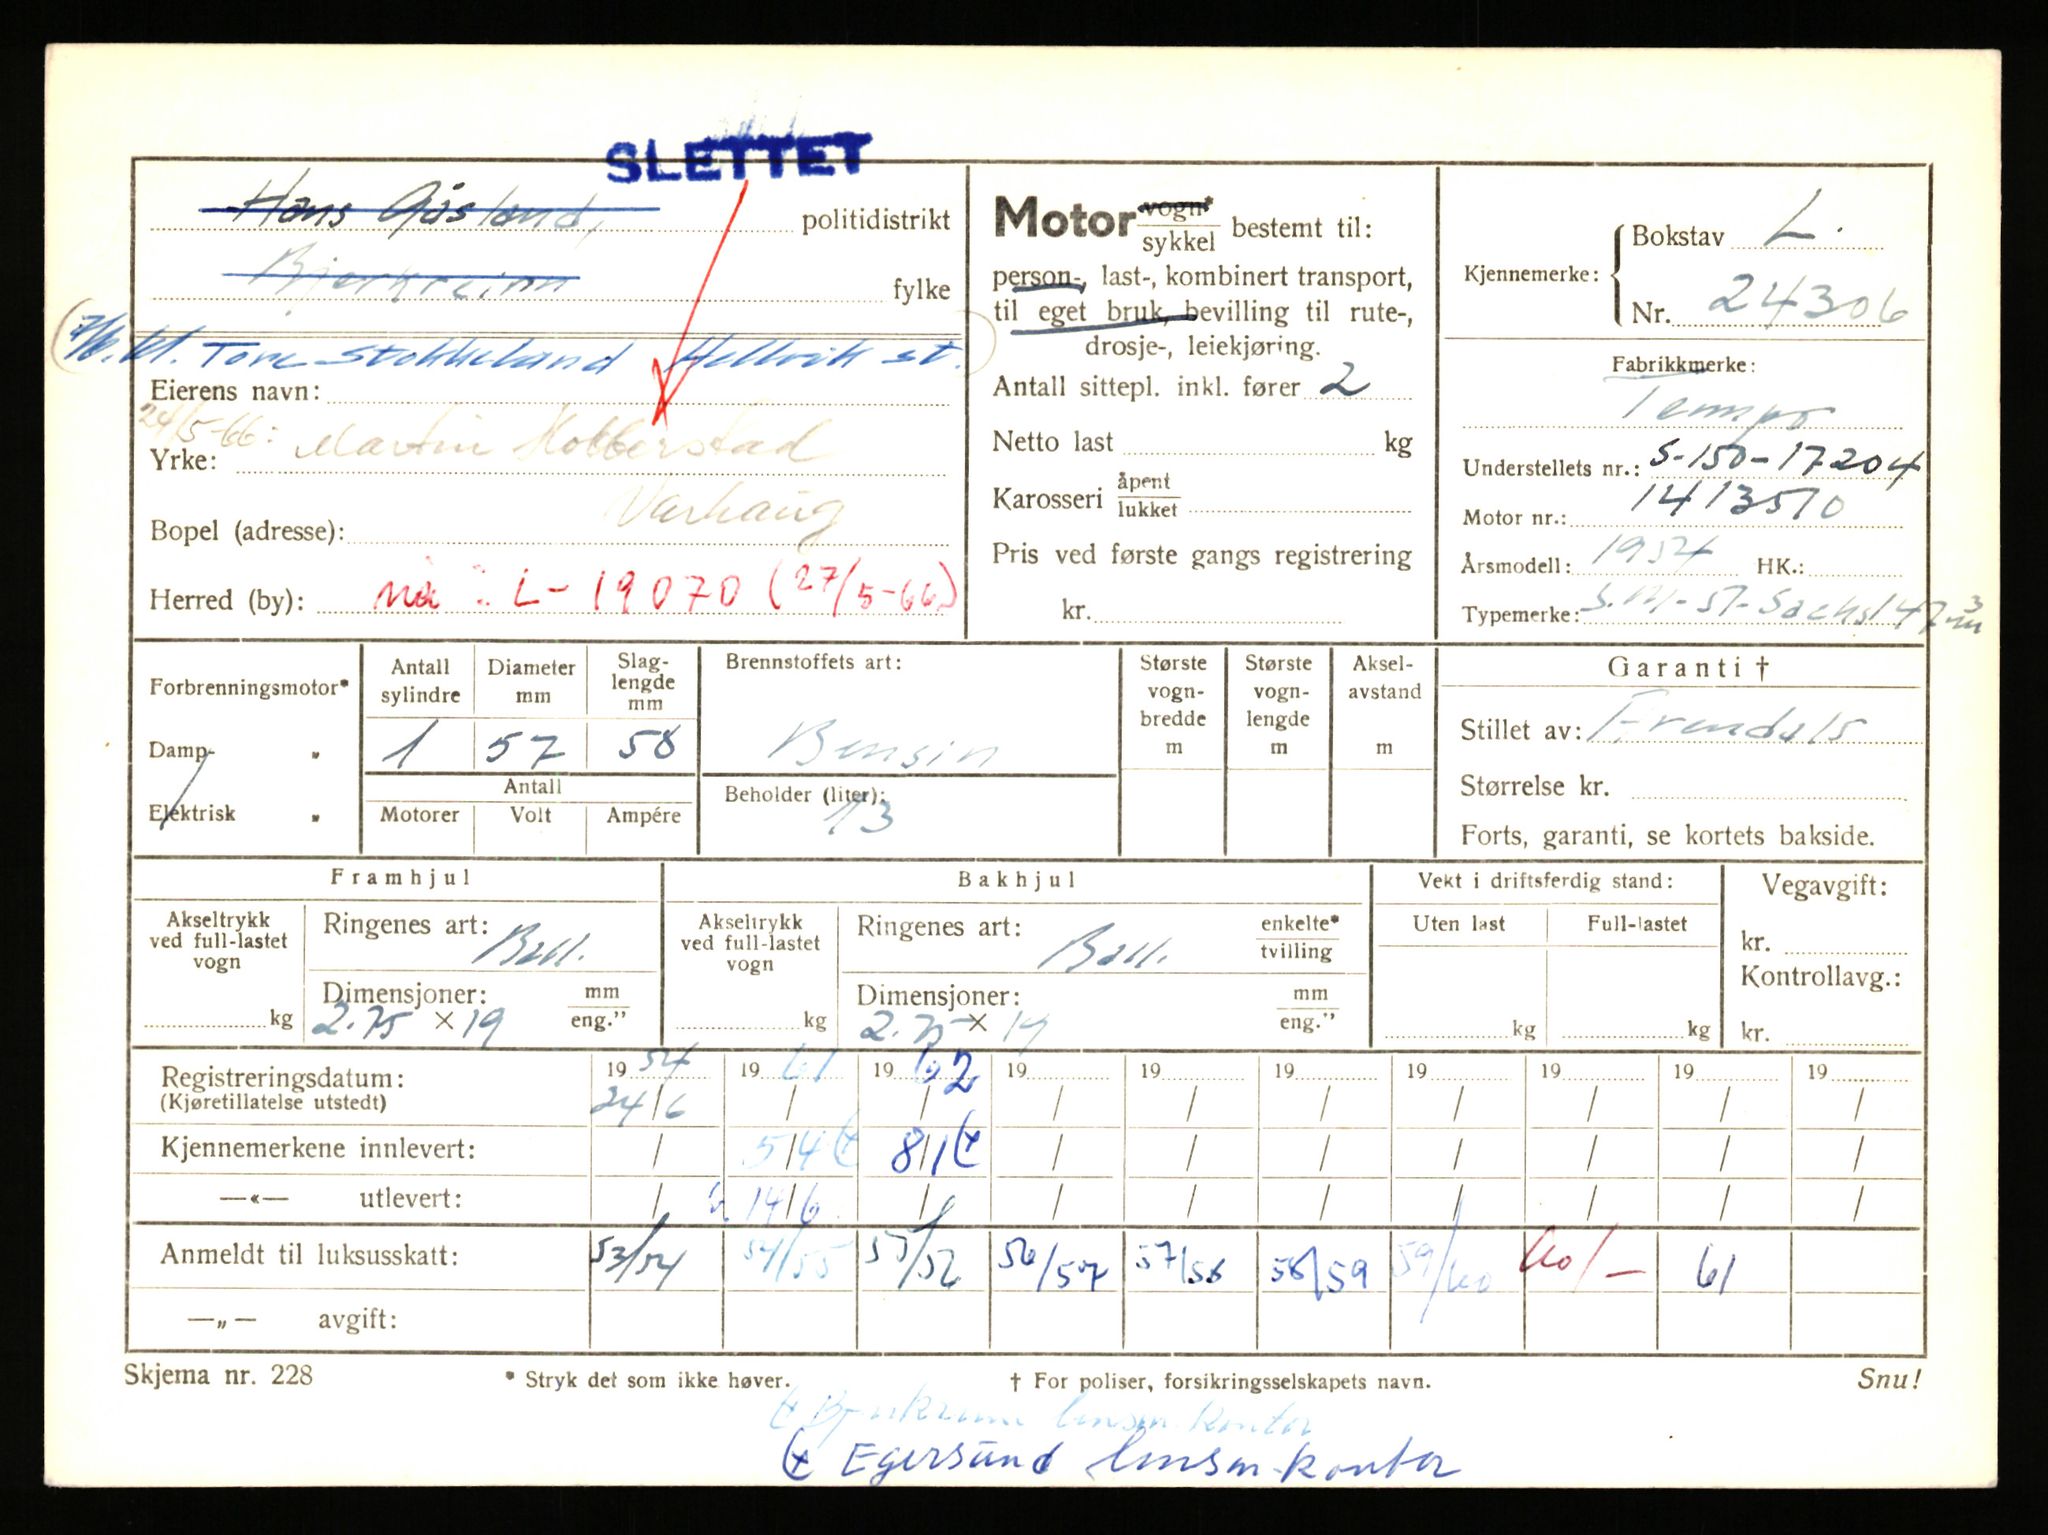 SLETTET
Hans Gåsland, politidistrikt
Bjerkreim fylke
Tore Stokkeland Hellvik st.
Eierens navn:
24/5-66: Martin Hobberstad
Yrke:
Varhaug
Bopel (adresse):
Herred (by): nå: L-19070 (27/5-66)
Motor vogn* sykkel bestemt til:
person-, last-, kombinert transport,
til eget bruk, bevilling til rute-,
drosje-, leiekjøring.
Antall sittepl. inkl. fører 2
Netto last kg
Karosseri åpent lukket
Pris ved første gangs registrering
kr.
Kjennemerke: Bokstav L.
Nr. 24306
Fabrikkmerke:
Tempo
Understellets nr.: S-150-17204
Motor nr.: 1413510
Årsmodell: 1954 HK.:
Typemerke: S.M-51-Sachs 147
Forbrenningsmotor*
Damp- „
Elektrisk „
Antall sylindre Diameter mm Slag-lengde mm
1 57 58
Antall
Motorer Volt Ampére
Brennstoffets art:
Bensin
Beholder (liter):
13
Største vogn-bredde m
Største vogn-lengde m
Aksel-avstand m
Garanti †
Stillet av: Arendals
Størrelse kr.
Forts, garanti, se kortets bakside.
Framhjul
Akseltrykk ved full-lastet vogn kg
Ringenes art: Ball.
Dimensjoner: mm eng."
2.75 × 19
Bakhjul
Akseltrykk ved full-lastet vogn kg
Ringenes art: Ball. enkelte* tvilling
Dimensjoner: mm eng."
2.75 × 19
Vekt i driftsferdig stand:
Uten last Full-lastet
kg kg
Vegavgift:
kr.
Kontrollavg.:
kr.
Registreringsdatum: 1954 1961 1962 19 19 19 19 19 19 19
(Kjøretillatelse utstedt) 24/6 / / / / / / / / /
Kjennemerkene innlevert: / 5/4 (+ 8/1 (+ / / / / / / /
—«— utlevert: / 14/6 / / / / / / / /
Anmeldt til luksusskatt: 53/54 54/55 55/56 56/57 57/58 58/59 59/60 60/- 61
—„— avgift:
Skjema nr. 228 * Stryk det som ikke høver. † For poliser, forsikringsselskapets navn. Snu!
(+ Bjerkreim lensm.kontor
(+ Egersund lensm-kontor